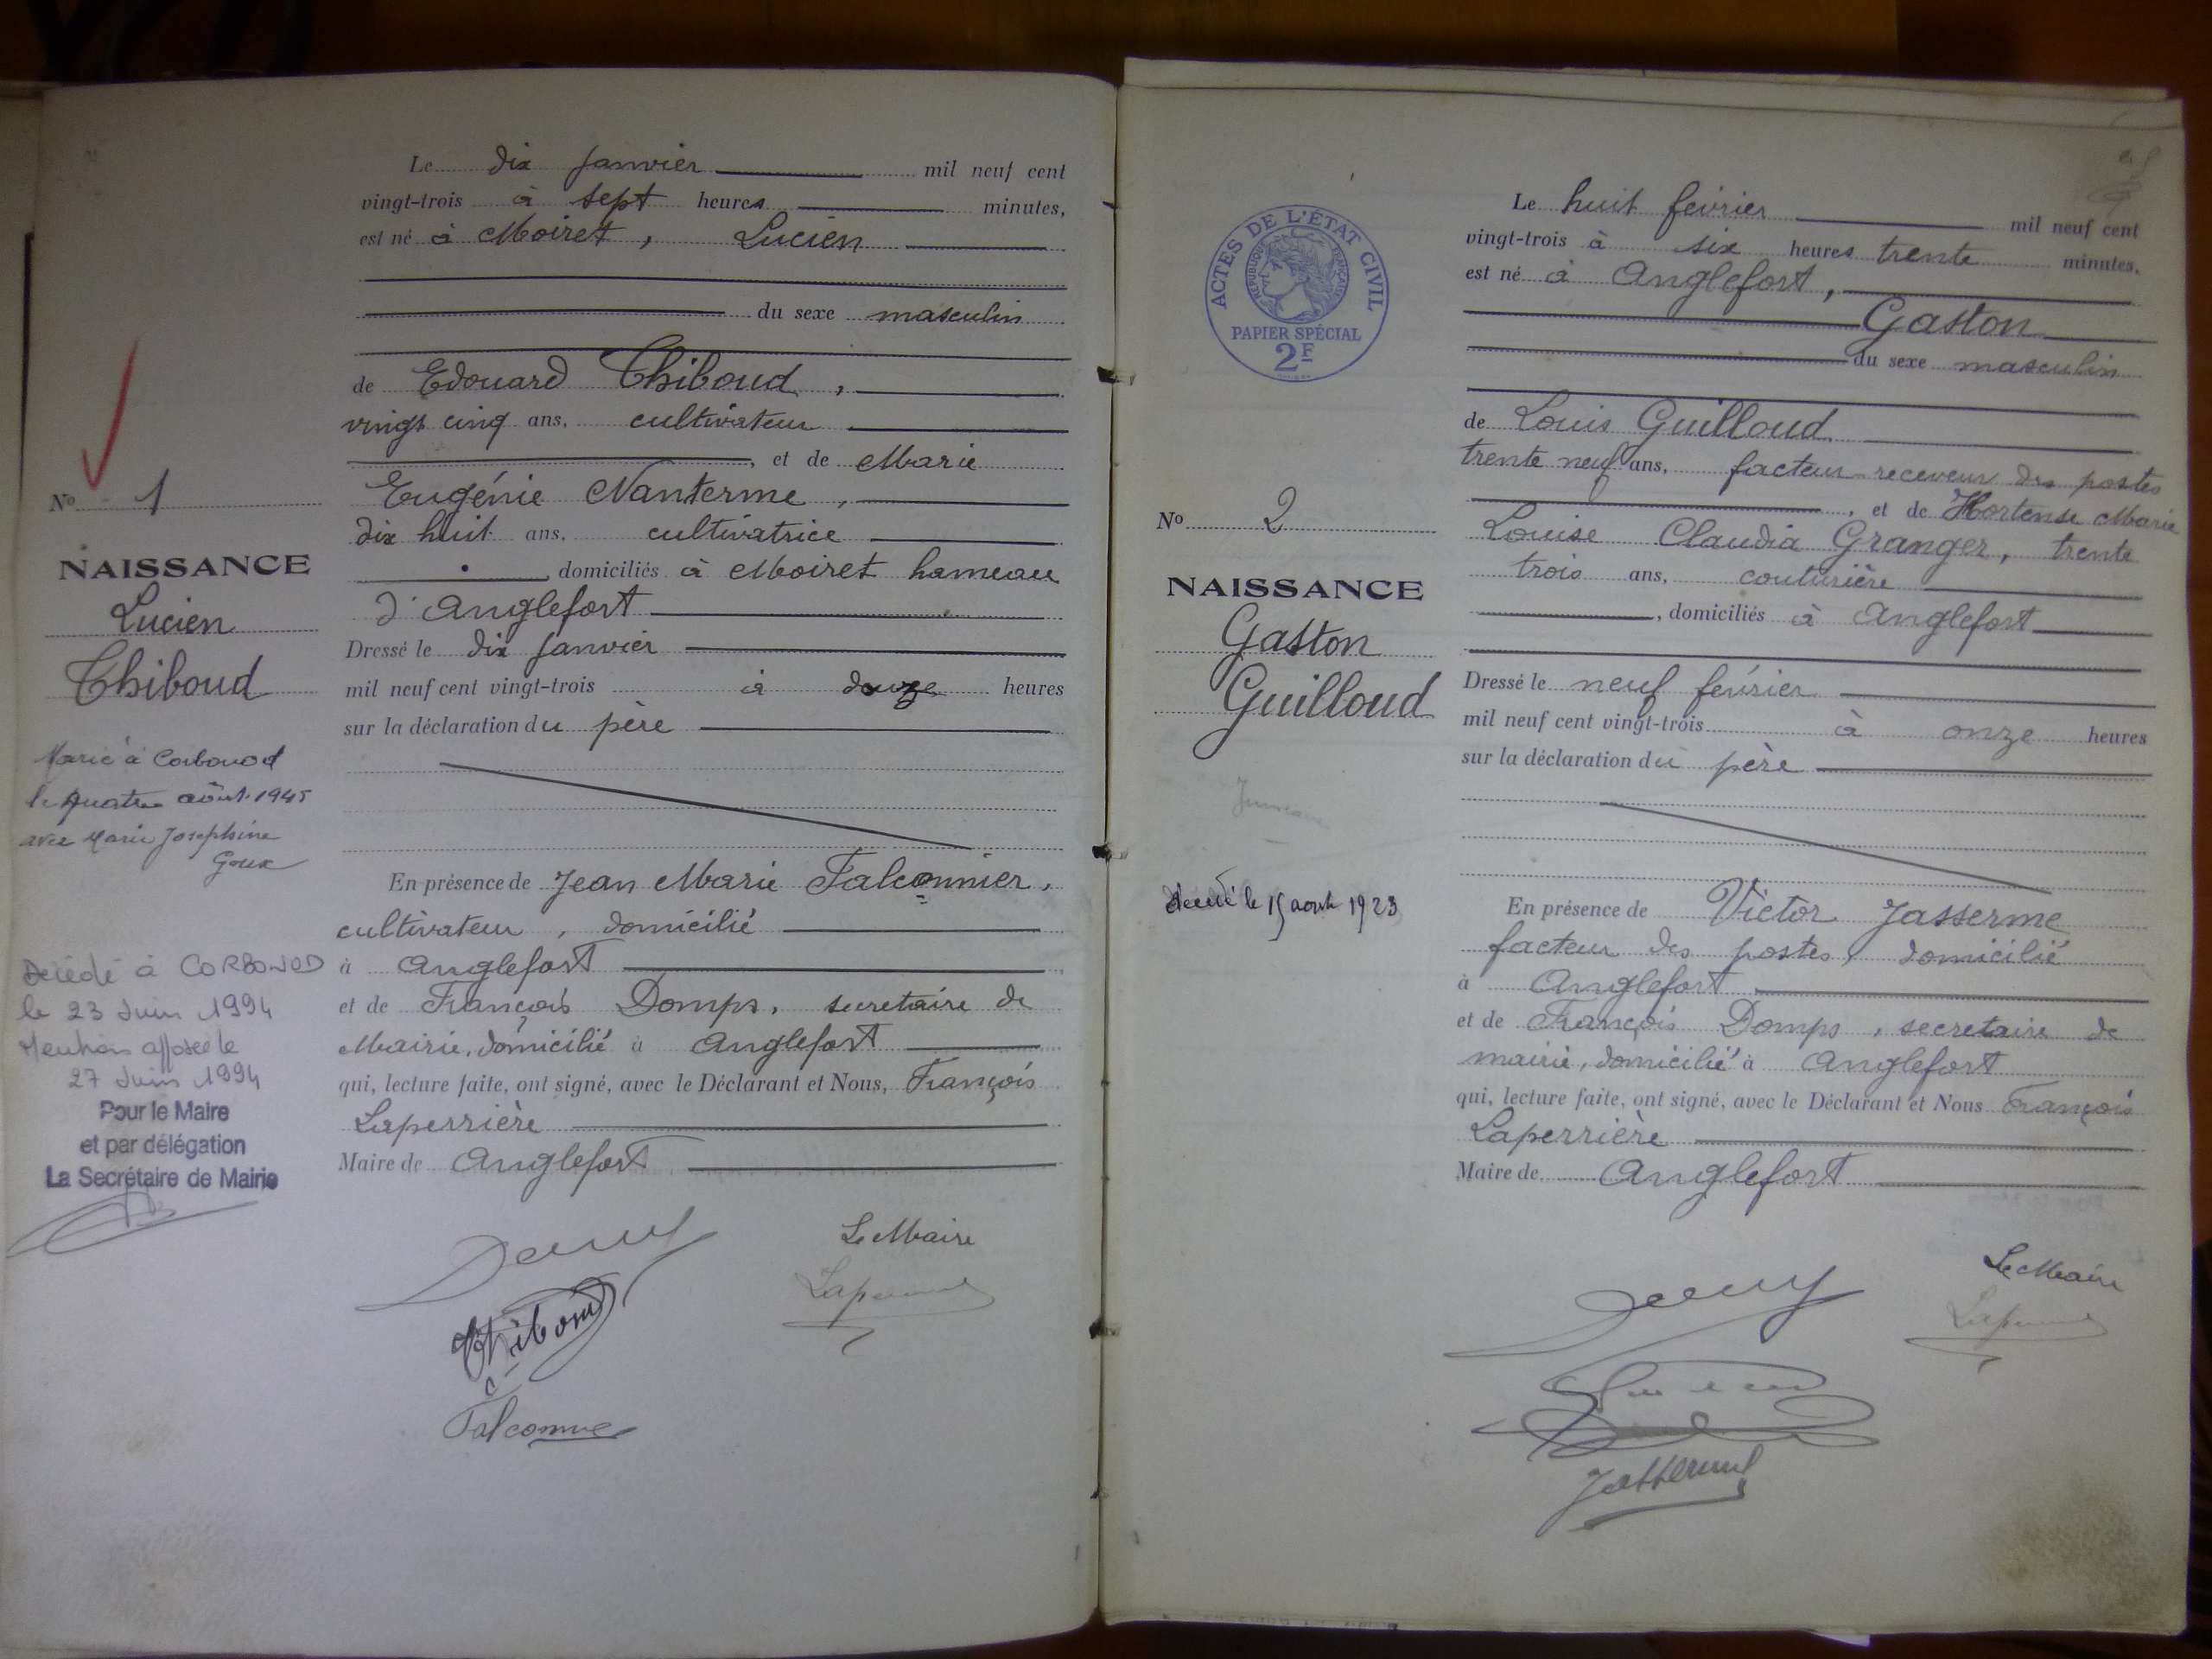 Le dix janvier mil neuf cent
vingt-trois à sept heures minutes,
est né à Moiret, Lucien
du sexe masculin
de Edouard Thiboud,
vingt cinq ans, cultivateur
, et de Marie
Eugénie Nanterme,
dix huit ans, cultivatrice
domiciliés à Moiret hameau
d'Anglefort
Dressé le dix janvier
mil neuf cent vingt-trois à douze heures
sur la déclaration du père
En présence de Jean Marie Falconnier,
cultivateur, domicilié
à Anglefort
et de François Domps, secretaire de
Mairie, domicilié à Anglefort
qui, lecture faite, ont signé, avec le Déclarant et Nous, François
Laperrière
Maire de Anglefort
Le Maire
Thiboud
Falconnier
No 1
NAISSANCE
Lucien
Thiboud
Marié à Corbonod
le quatre août 1945
avec Marie Josephine
Goux
Décédé à CORBONOD
le 23 Juin 1994
Mention apposée le
27 Juin 1994
Pour le Maire
et par délégation
La Secrétaire de Mairie
ACTES DE L'ÉTAT CIVIL
RÉPUBLIQUE FRANÇAISE
PAPIER SPÉCIAL
2F
No 2
NAISSANCE
Gaston
Guilloud
Jumeau
décédé le 15 août 1923
Le huit février mil neuf cent
vingt-trois à six heures trente minutes,
est né à Anglefort,
Gaston
du sexe masculin
de Louis Guilloud
trente neuf ans, facteur receveur des postes
, et de Hortense Marie
Louise Claudia Granger, trente
trois ans, couturière
, domiciliés à Anglefort
Dressé le neuf février
mil neuf cent vingt-trois à onze heures
sur la déclaration du père
En présence de Victor Jasserme
facteur des postes, domicilié
à Anglefort
et de François Domps, secretaire de
mairie, domicilié à Anglefort
qui, lecture faite, ont signé, avec le Déclarant et Nous François
Laperrière
Maire de Anglefort
Le Maire
Jasserme